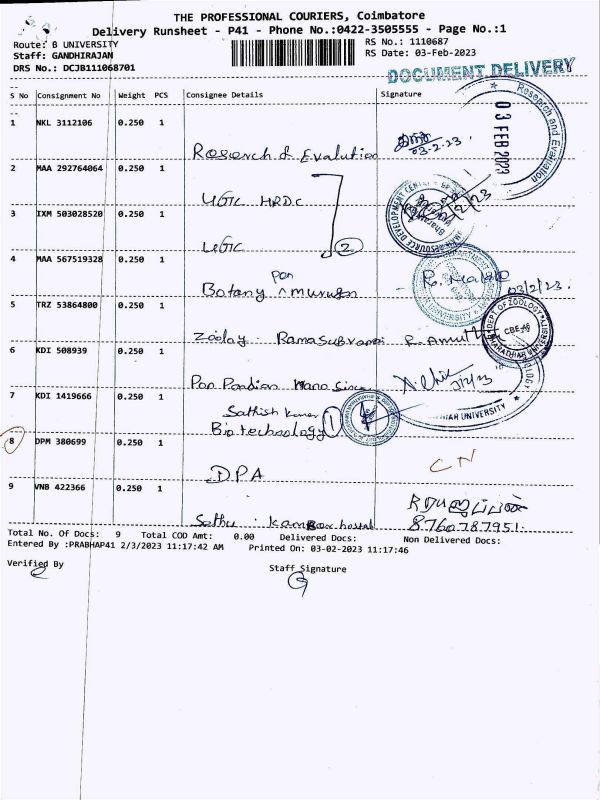 THE PROFESSIONAL COURIERS, Coimbatore
Delivery Runsheet - P41 - Phone No.:0422-3505555 - Page No.:1
Route: B UNIVERSITY
RS No.: 1110687
Staff: GANDHIRAJAN
RS Date: 03-Feb-2023
DRS No.: DCJB111068701
DOCUMENT DELIVERY
S No Consignment No Weight PCS Consignee Details Signature
Research and Evaluation
03 FEB 2023
1 NKL 3112106 0.250 1
Research & Evalution 03-2-23
2 MAA 292764064 0.250 1
UGC HRDC
3 IXM 503028520 0.250 1
UGC 2
4 MAA 567519328 0.250 1
Botany 03/2/23.
5 TRZ 53864800 0.250 1
DEPT OF ZOOLOGY
CBE-46
Zoology R. Amuth
6 KDI 508939 0.250 1
Pandian
7 KDI 1419666 0.250 1
Sathish Kumar
Biotechnology 1
UNIVERSITY
8 DPM 380699 0.250 1
DPA CN
9 VNB 422366 0.250 1
hostel 8760787951.
Total No. Of Docs: 9 Total COD Amt: 0.00 Delivered Docs: Non Delivered Docs:
Entered By :PRABHAP41 2/3/2023 11:17:42 AM Printed On: 03-02-2023 11:17:46
Verified By Staff Signature